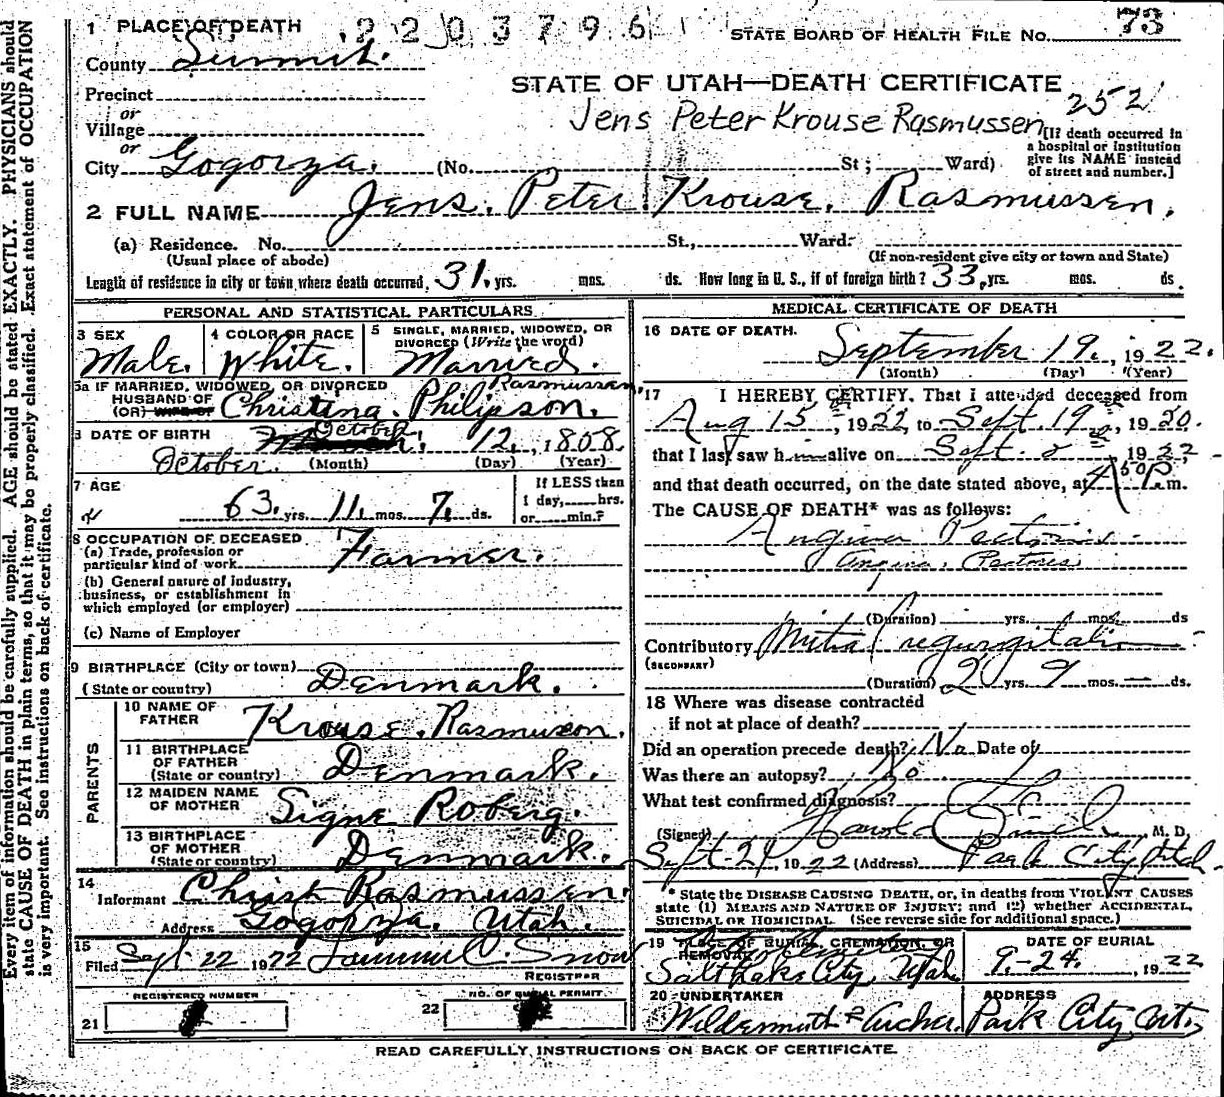 1 PLACE OF DEATH 2203796 STATE BOARD OF HEALTH FILE No. 73
County Summit.
STATE OF UTAH—DEATH CERTIFICATE
Precinct 252
or
Village
Jens Peter Krouse Rasmussen
[If death occurred in a hospital or institution give its NAME instead of street and number.]
or
City Gogorza. (No. St; Ward)
2 FULL NAME Jens. Peter Krouse. Rasmussen.
(a) Residence. No. St., Ward.
(Usual place of abode) (If non-resident give city or town and State)
Length of residence in city or town where death occurred, 31. yrs. mos. ds. How long in U. S., if of foreign birth? 33. yrs. mos. ds.
PERSONAL AND STATISTICAL PARTICULARS
3 SEX 4 COLOR OR RACE 5 SINGLE, MARRIED, WIDOWED, OR DIVORCED (Write the word)
Male. White. Married.
5a IF MARRIED, WIDOWED, OR DIVORCED
HUSBAND OF
(OR) WIFE OF Christina. Philipson. Rasmussen.
DATE OF BIRTH October 12, 1858.
October. (Month) (Day) (Year)
7 AGE
63. yrs. 11. mos. 7. ds.
If LESS than
1 day, hrs.
or min.?
8 OCCUPATION OF DECEASED
(a) Trade, profession or
particular kind of work Farmer.
(b) General nature of industry,
business, or establishment in
which employed (or employer)
(c) Name of Employer
9 BIRTHPLACE (City or town)
(State or country) Denmark.
PARENTS
10 NAME OF
FATHER Krouse. Rasmuson.
11 BIRTHPLACE
OF FATHER
(State or country) Denmark.
12 MAIDEN NAME
OF MOTHER Signe Roberg.
13 BIRTHPLACE
OF MOTHER
(State or country) Denmark.
14
Informant Christ Rasmussen.
Address Gogorza. Utah.
15
Filed Sept 22 1922 C. Snow
REGISTRAR
REGISTERED NUMBER
21
NO. OF BURIAL PERMIT
22
MEDICAL CERTIFICATE OF DEATH
16 DATE OF DEATH.
September 19., 1922.
(Month) (Day) (Year)
17 I HEREBY CERTIFY, That I attended deceased from
Aug 15, 1922, to Sept. 19, 1920.
that I last saw him alive on Sept. 1922
and that death occurred, on the date stated above, at 4 50 P. m.
The CAUSE OF DEATH* was as follows:
Angina Pectoris
Angina. Pectores
(Duration) yrs. mos. ds
Contributory Mitral regurgitation
(SECONDARY)
(Duration) 2 yrs. 9 mos. — ds.
18 Where was disease contracted
if not at place of death?
Did an operation precede death? No Date of
Was there an autopsy? No
What test confirmed diagnosis?
(Signed) Harold M. D.
Sept-21, 1922 (Address) Park City Utah
* State the DISEASE CAUSING DEATH, or, in deaths from VIOLENT CAUSES
state (1) MEANS AND NATURE OF INJURY; and (2) whether ACCIDENTAL,
SUICIDAL OR HOMICIDAL. (See reverse side for additional space.)
19 PLACE OF BURIAL, CREMATION, OR REMOVAL DATE OF BURIAL
Salt Lake City, Utah 9.-24. 1922
20 UNDERTAKER ADDRESS
Wildermuth & Archer. Park City, Ut.
READ CAREFULLY INSTRUCTIONS ON BACK OF CERTIFICATE.
Every item of information should be carefully supplied. AGE should be stated EXACTLY. PHYSICIANS should
state CAUSE OF DEATH in plain terms, so that it may be properly classified. Exact statement of OCCUPATION
is very important. See instructions on back of certificate.